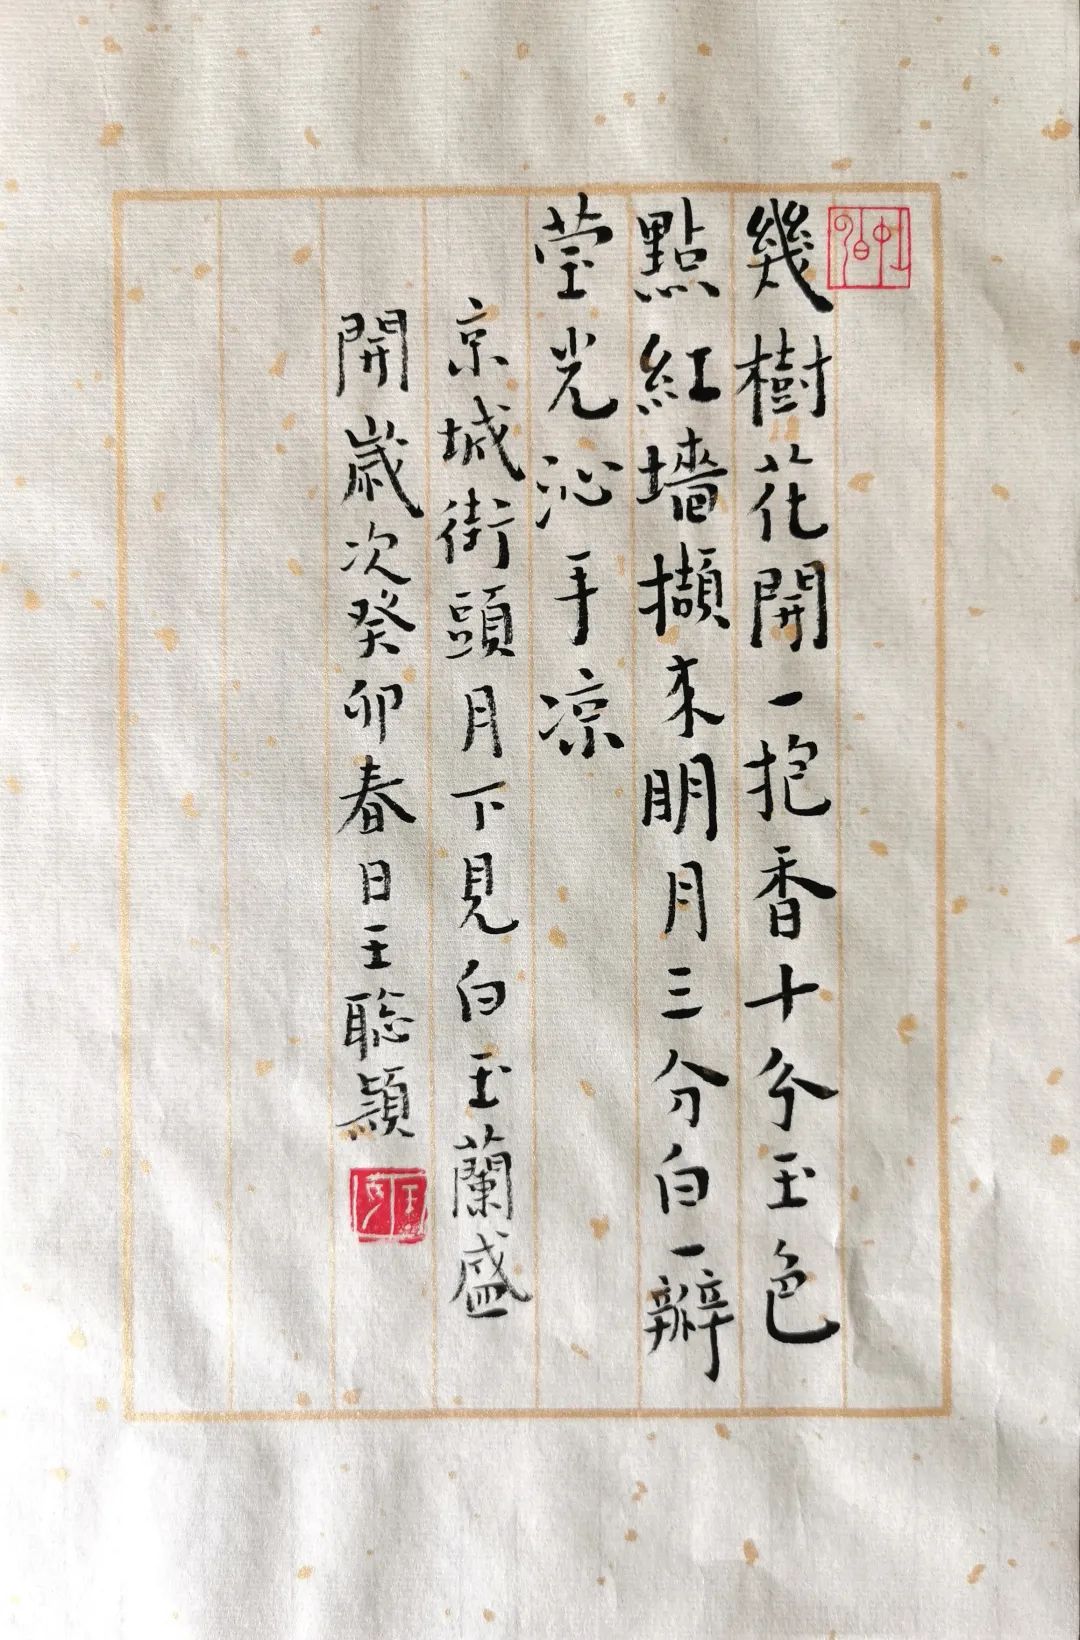 幾樹花開一抱香十分玉色
點紅墻擷來明月三分白一瓣
莹光沁手凉
京城街頭月下見白玉蘭盛
開歲次癸卯春日王聡穎